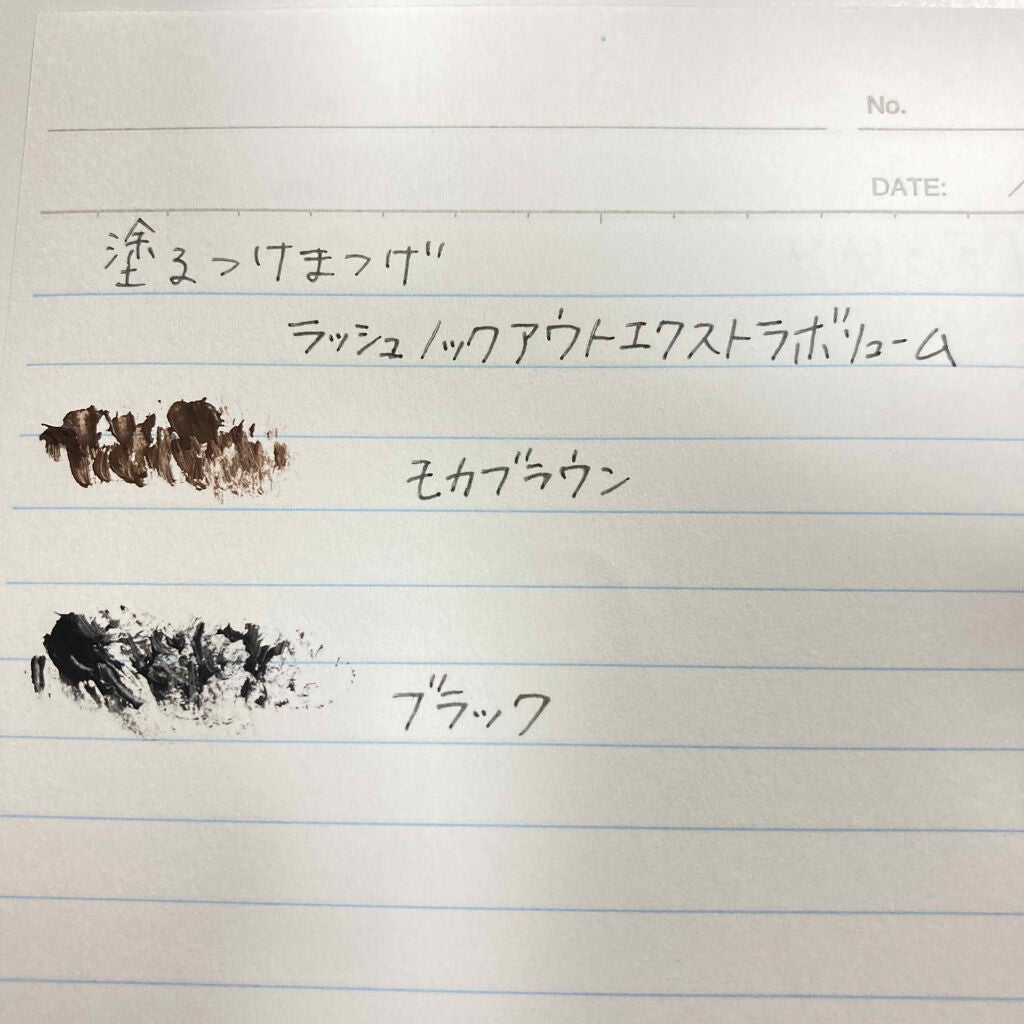 No.
DATE:
塗るつけまつげ
ラッシュノックアウトエクストラボリューム
モカブラウン
ブラック